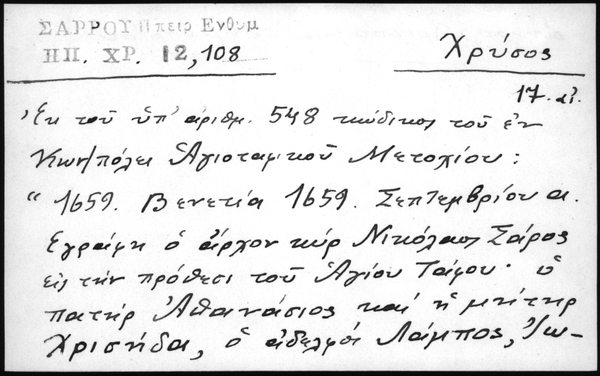 ΣΑΡΡΟΥ Ηπειρ Ενθυμ
ΗΠ. ΧΡ. 12, 108
Χρύσος
17. αἰ.
Ἐκ τοῦ ὑπ' ἀριθμ. 548 κώδικος τοῦ ἐν
Κων/πόλει Ἁγιοταφικοῦ Μετοχίου:
“1659. Βενετία 1659. Σεπτεμβρίου α.
Εγράφη ὁ ἄρχον κύρ Νικόλαος Σάρος
εἰς τήν πρόθεσι τοῦ Ἁγίου Τάφου· ὁ
πατήρ Ἀθανάσιος καί ἡ μήτηρ
Χρισηίδα, ὁ ἀδελφός Λάμπος, Ἰω-